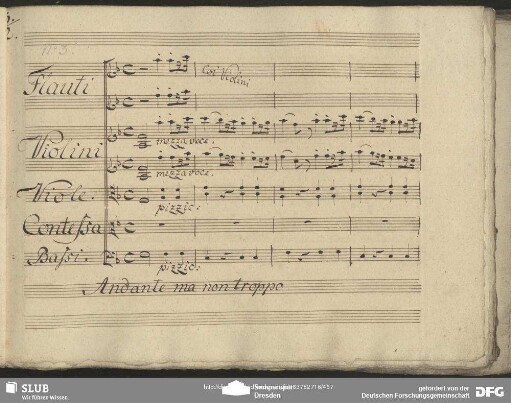 N° 3.
Flauti
Col Violini
Violini
mezza voce.
mezza voce.
Viole.
pizzic:
Contessa
Bassi.
pizzic:
Andante ma non troppo
SLUB
Wir führen Wissen.
Dresden
gefördert von der
Deutschen Forschungsgemeinschaft
DFG